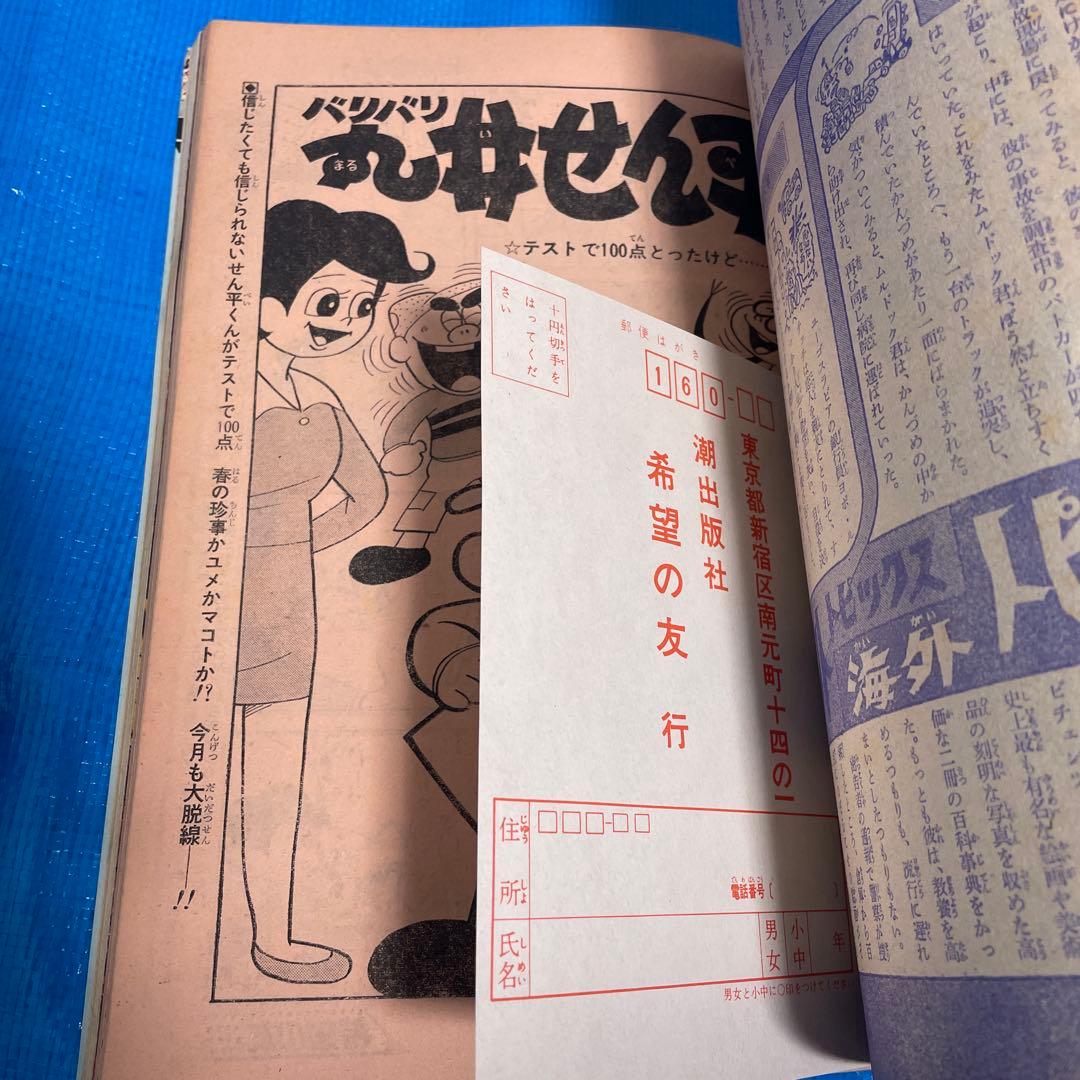 バリバリ
丸井せんす
☆テストで100点とったけど……
◆信じたくても信じられないせん平くんがテストで100点　春の珍事かユメかマコトか!?　今月も大脱線──!!
十円切手を
はってくだ
さい
郵便はがき
160-□□
東京都新宿区南元町十四の一
潮出版社
希望の友　行
住所
□□□-□□
電話番号（　　）
氏名
男
女
小
中
年
男女と小中に○印をつけてくださ
が起こり、中には、彼の事故を調査中の
はいっていた。これをみたムルドック君、ぼう然と立ちすく
んでいたところへ、もう一台のトラックが追突し、
積んでいたかんづめがあたり一面にばらまかれた。
気がついてみると、ムルドック君は、かんづめの中か
ら助け出され、再び同じ病院に運ばれていった。
トピックス
海外
史上最も有名な絵画や美術
品の刻明な写真を収めた高
価な二冊の百科事典をかっ
た。もっとも彼は、教養を高
めるつもりも、流行に遅れ
まいとしたつもりもない。